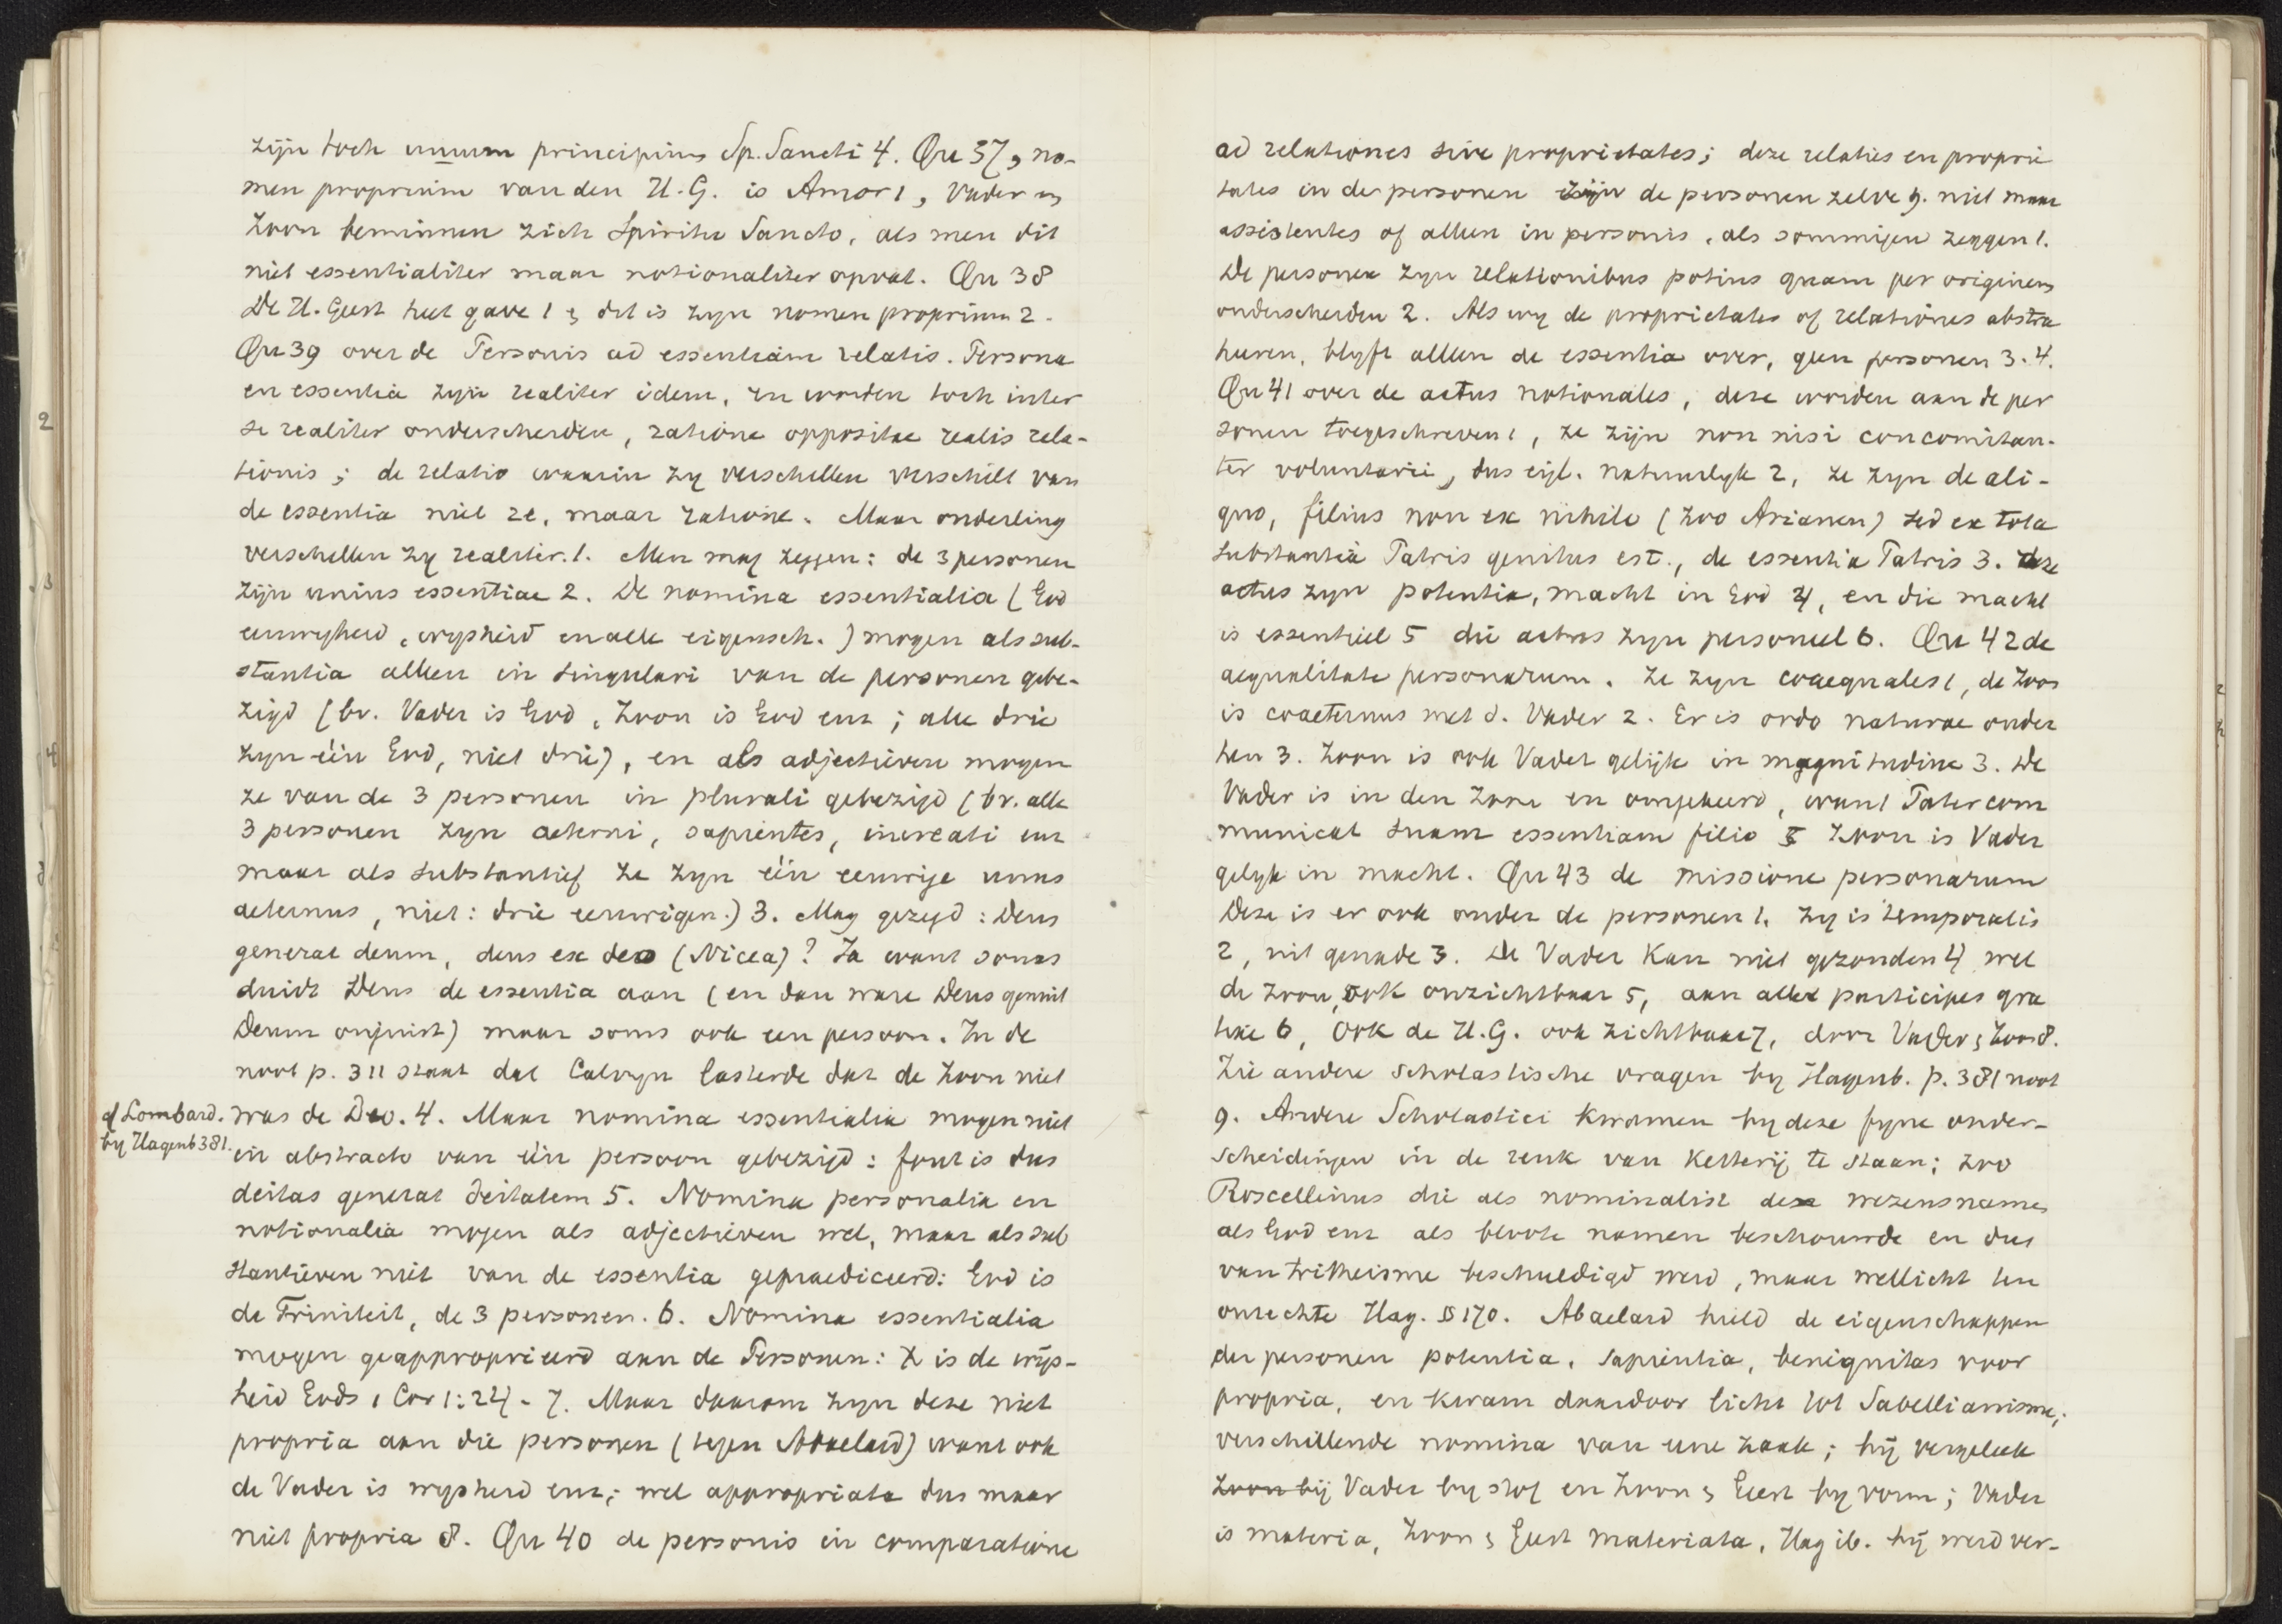 zijn toch unum principium Sp. Sancti 4. Qu 37, no-
men proprium van den H. G. is Amor 1, Vader en
Zoon beminnen zich Spiritu Sancto, als men dit
niet essentialiter maar notionaliter opvat. Qu 38
De H. Geest heet gave 1 & dit is zyn nomen proprium 2.
Qu 39 over de Personis ad essentiam relatis. Persona
en essentia zyn realiter idem, en worden toch inter
se realiter onderscheiden, ratione oppositae realis rela-
tionis; de relatio waarin zy verschillen verschilt van
de essentia niet re, maar ratione. Maar onderling
verschillen zy realiter. 1. Men mag zeggen: de 3 personen
zijn unius essentiae 2. De nomina essentialia (God
eeuwigheid, wysheid en alle eigensch.) mogen als sub-
stantia alleen in singulari van de personen gebe-
zigd (bv. Vader is God, Zoon is God enz; alle drie
zyn één God, niet drie), en als adjectieven mogen
ze van de 3 personen in plurali gebezigd (bv. alle
3 personen zyn aeterni, sapientes, increati enz
maar als substantief ze zyn één eeuwige unus
aeternus, niet: drie eeuwigen.) 3. Mag gezegd: Deus
generat deum, deus ex deo (Nicea)? Ja want soms
duidt Deus de essentia aan (en dan ware Deus genuit
Deum onjuist) maar soms ook een persoon. In de
noot p. 311 staat dat Calvyn lasterde dat de Zoon niet
cf Lombard. was de Deo. 4. Maar nomina essentialia mogen niet
by Hagenb 381. in abstracto van één persoon gebezigd: fout is dus
deitas generat deitatem 5. Nomina personalia en
notionalia mogen als adjectieven wel, maar als sub
stantieven niet van de essentia gepraediceerd: God is
de Triniteit, de 3 personen. 6. Nomina essentialia
mogen geapproprieerd aan de Personen: X is de wijs-
heid Gods 1 Cor 1:24. 7. Maar daarom zyn deze niet
propria aan die personen (tegen Abaelard) want ook
de Vader is wysheid enz; wel appropriata dus maar
niet propria 8. Qu 40 de personis in comparatione
ad relationes sive proprietates; deze relaties en proprie
tates in de personen zijn de personen zelve 9. niet maar
assistentes of alleen in personis, als sommigen zeggen 1.
De personen zyn relationibus potius quam per originem
onderscheiden 2. Als wy de proprietates of relationes abstra
heeren, blyft alleen de essentia over, geen personen 3. 4.
Qu 41 over de actus notionales, deze worden aan de per
sonen toegeschreven 1, ze zijn non nisi concomitan-
ter voluntarii, dus eigl. natuurlyk 2, ze zyn de ali-
quo, filius non ex nihilo (zoo Arianen) sed ex tota
substantia Patris genitus est., de essentia Patris 3. deze
actus zyn potentia, macht in God 4, en die macht
is essentieel 5 die actus zyn personeel 6. Qu 42 de
aequalitate personarum. Ze zyn coaequales 1, de Zoon
is coaeternus met d. Vader 2. Er is ordo naturae onder
hen 3. Zoon is ook Vader gelijk in magnitudine 3. De
Vader is in den Zoon en omgekeerd, want Pater com
municat suam essentiam filio 5 Zoon is Vader
gelyk in macht. Qu 43 de missione personarum
Deze is er ook onder de personen 1. zy is temporalis
2, uit genade 3. De Vader kan niet gezonden 4 wel
de Zoon, ook onzichtbaar 5, aan alle participes gra
tiae 6, ook de H. G. ook zichtbaar 7, door Vader & Zoon 8.
Zie andere scholastische vragen by Hagenb. p. 381 noot
9. Andere Scholastici kwamen by deze fyne onder-
scheidingen in de reuk van ketterij te staan; zoo
Roscellinus die als nominalist deze wezensnamen
als God enz als bloote namen beschouwde en dus
van tritheisme beschuldigd werd, maar wellicht ten
onrechte Hag. § 170. Abaelard hield de eigenschappen
der personen potentia, sapientia, benignitas voor
propria, en kwam daardoor licht tot Sabellianisme;
verschillende nomina van eene zaak; hij vergeleek
Zoon bij Vader by stof en Zoon & Geest by vorm; Vader
is materia, Zoon & Geest materiata, Hag ib. hij werd ver-